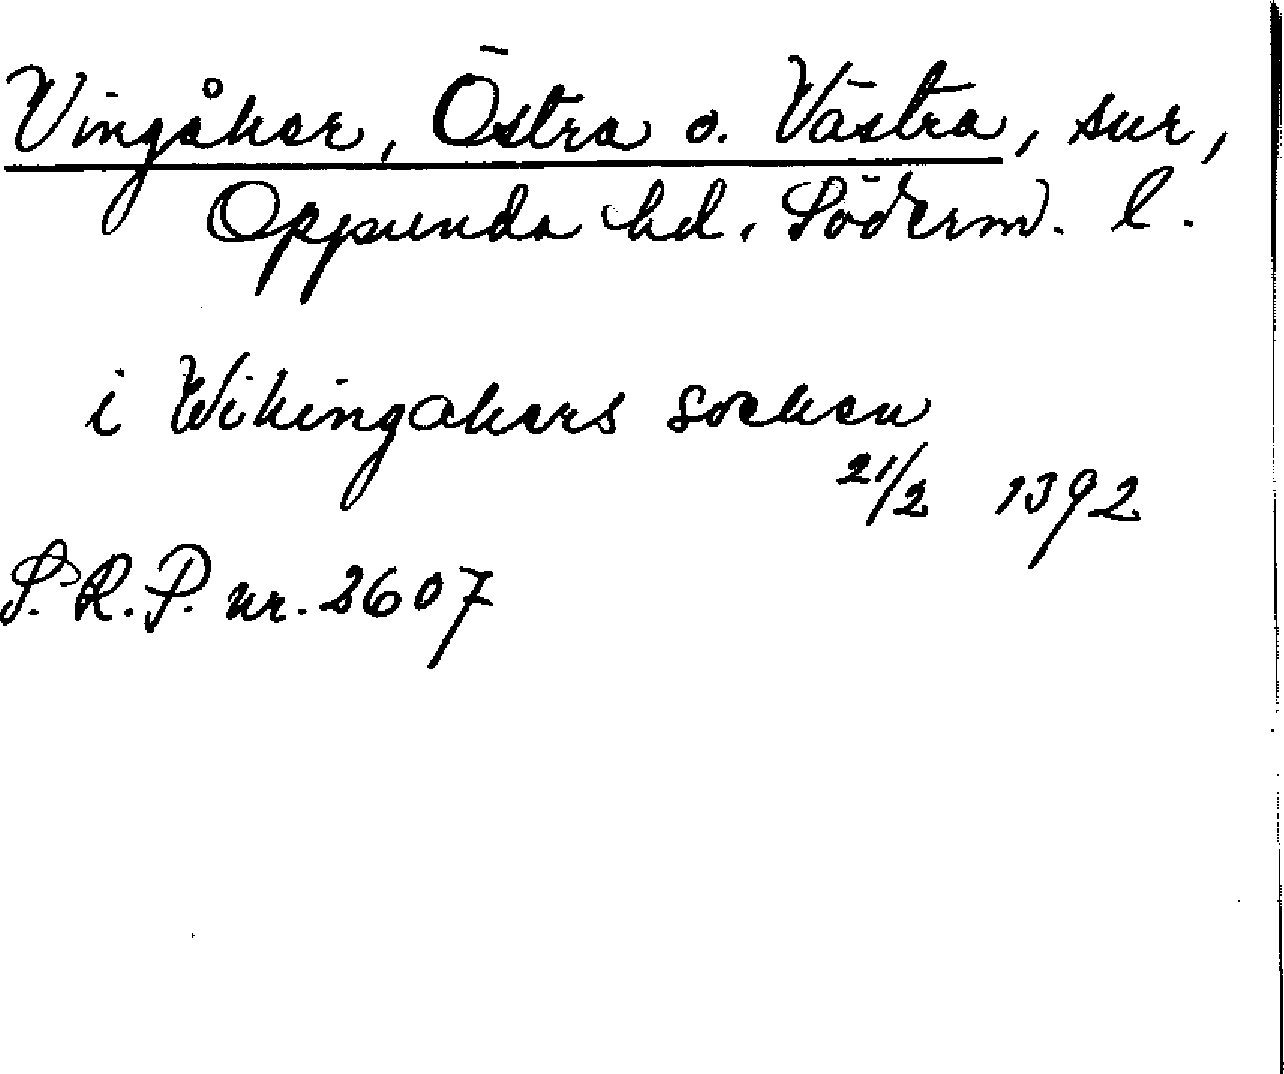 Vingåker, Östra o. Västra, snr,
Oppunda hd, Söderm. l.
i Wikingakers socken
21/2 1392
S.R.P. nr. 2607